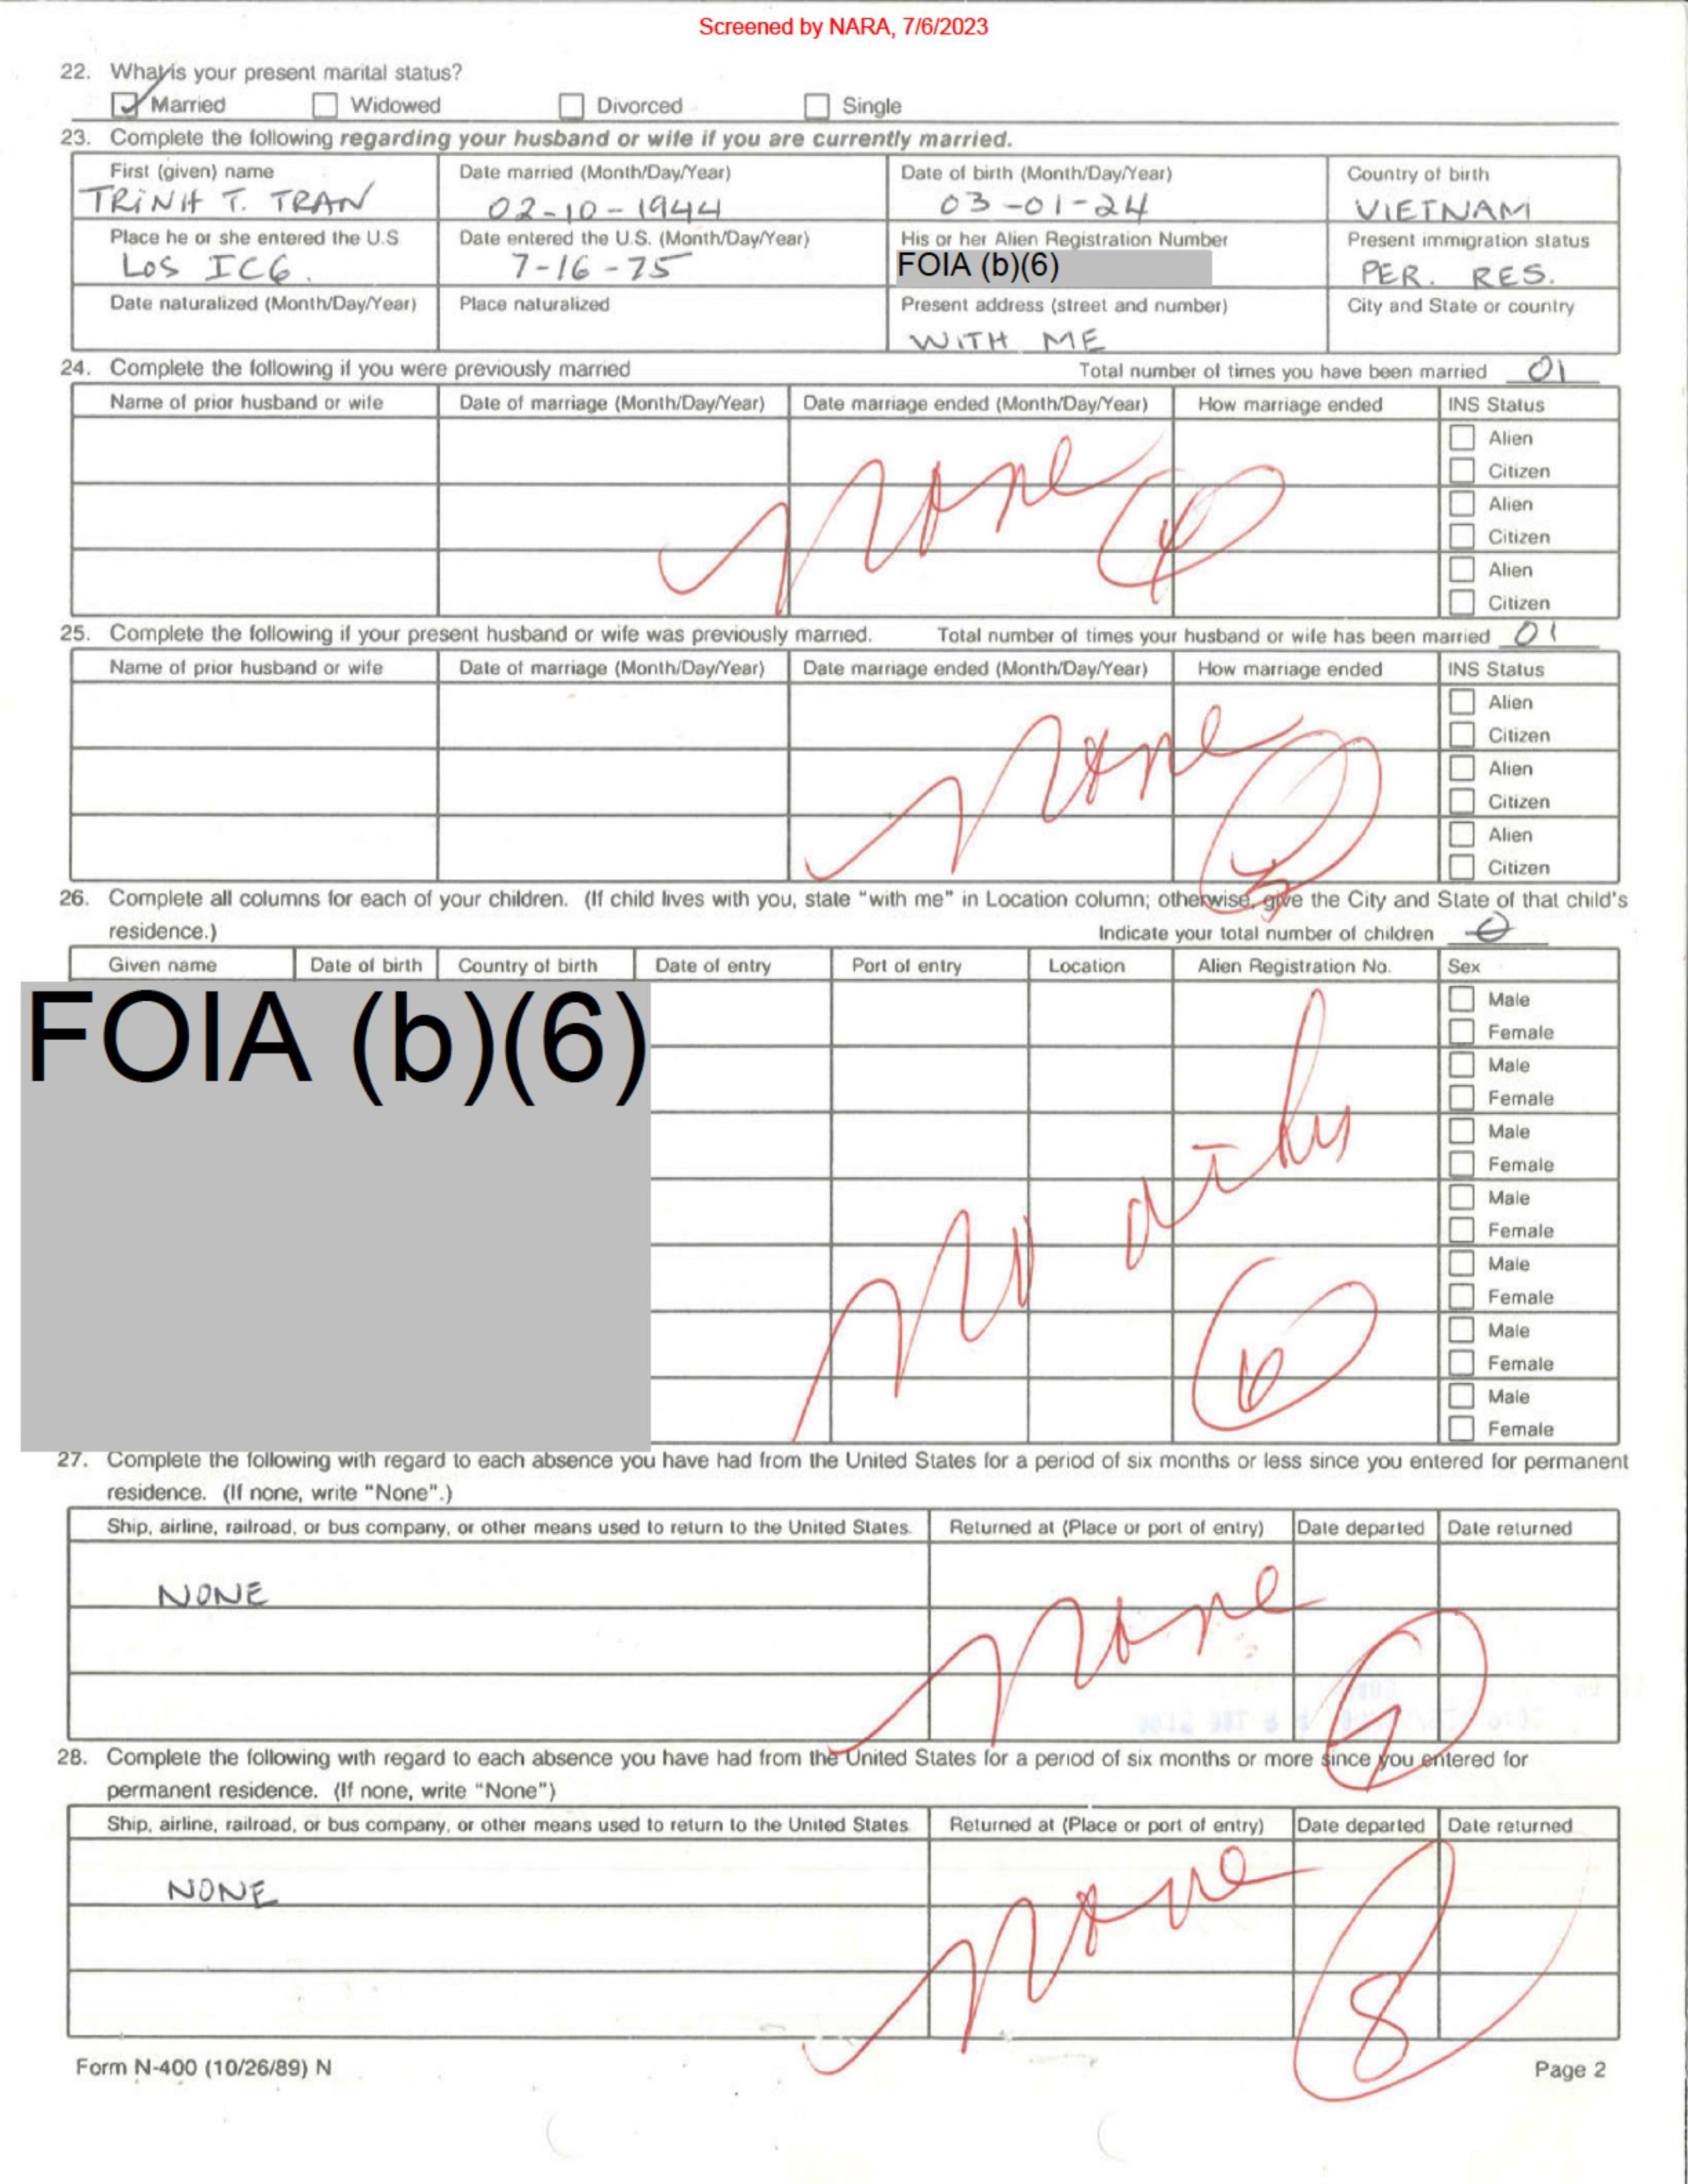 Screened by NARA, 7/6/2023
22. What is your present marital status?
Married Widowed Divorced Single
23. Complete the following regarding your husband or wife if you are currently married.
First (given) name Date married (Month/Day/Year) Date of birth (Month/Day/Year) Country of birth
TRINH T. TRAN 02-10-1944 03-01-24 VIETNAM
Place he or she entered the U.S. Date entered the U.S. (Month/Day/Year) His or her Alien Registration Number Present immigration status
LOS 7-16-75 FOIA (b)(6) PER. RES.
Date naturalized (Month/Day/Year) Place naturalized Present address (street and number) City and State or country
WITH ME
24. Complete the following if you were previously married Total number of times you have been married 01
Name of prior husband or wife Date of marriage (Month/Day/Year) Date marriage ended (Month/Day/Year) How marriage ended INS Status
Alien
Citizen
Alien
none
Citizen
Alien
Citizen
25. Complete the following if your present husband or wife was previously married. Total number of times your husband or wife has been married 01
Name of prior husband or wife Date of marriage (Month/Day/Year) Date marriage ended (Month/Day/Year) How marriage ended INS Status
Alien
Citizen
none
Alien
Citizen
Alien
Citizen
5
26. Complete all columns for each of your children. (If child lives with you, state "with me" in Location column; otherwise, give the City and State of that child's
residence.) Indicate your total number of children 0
Given name Date of birth Country of birth Date of entry Port of entry Location Alien Registration No. Sex
FOIA (b)(6)
Male
Female
Male
Female
Male
Female
Male
Female
Male
Female
Male
Female
Male
Female
27. Complete the following with regard to each absence you have had from the United States for a period of six months or less since you entered for permanent
residence. (If none, write "None".)
Ship, airline, railroad, or bus company, or other means used to return to the United States. Returned at (Place or port of entry) Date departed Date returned
NONE none
7
28. Complete the following with regard to each absence you have had from the United States for a period of six months or more since you entered for
permanent residence. (If none, write "None")
Ship, airline, railroad, or bus company, or other means used to return to the United States Returned at (Place or port of entry) Date departed Date returned
NONE none
8
Form N-400 (10/26/89) N Page 2